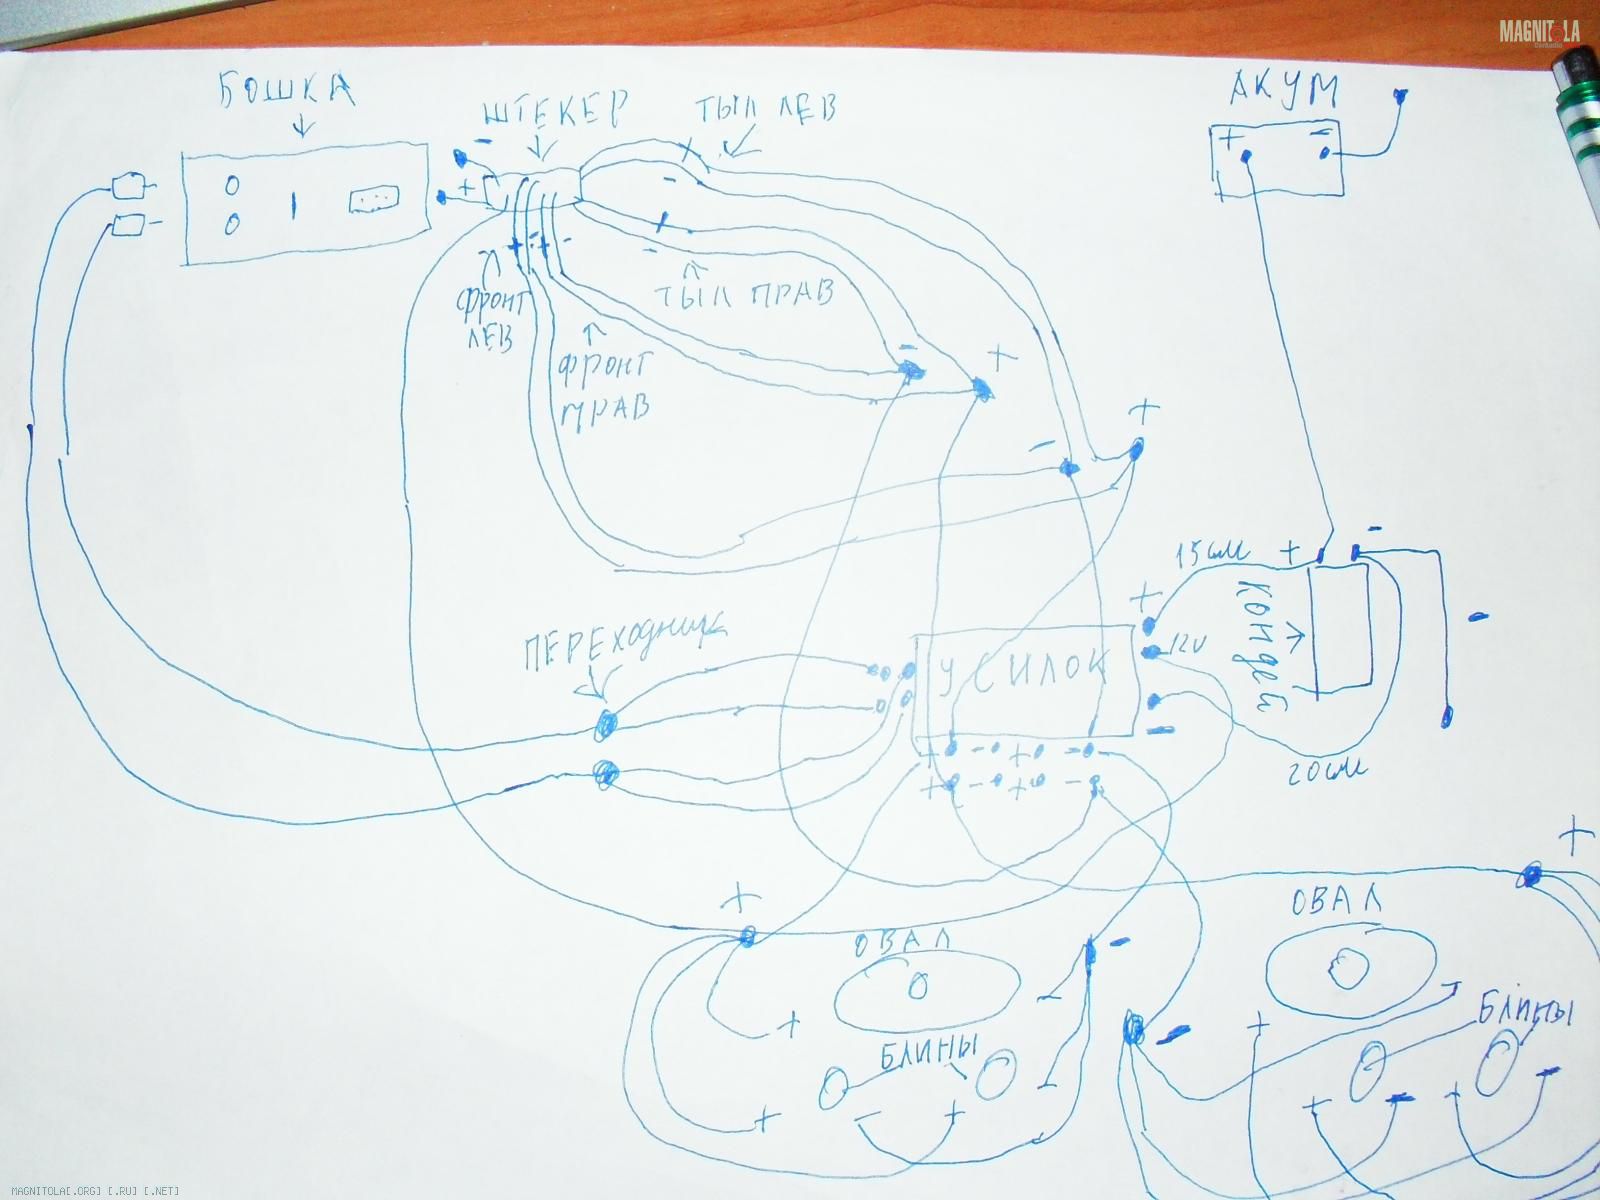 MAGNITOLA
БОШКА
АКУМ
+ -
ШТЕКЕР
ТЫЛ ЛЕВ
-
+
+
-
+
-
+ - + -
ФРОНТ
ЛЕВ
ТЫЛ ПРАВ
ФРОНТ
ПРАВ
-
+
+
-
15 см + -
КОНДЕЙ
ПЕРЕХОДНИК
+
12V
УСИЛОК
-
-
+ - + -
+ - + -
20 см
+
+
ОВАЛ
ОВАЛ
-
-
+
+
БЛИНЫ
БЛИНЫ
+ - +
+ - + -
MAGNITOLA[.ORG] [.RU] [.NET]